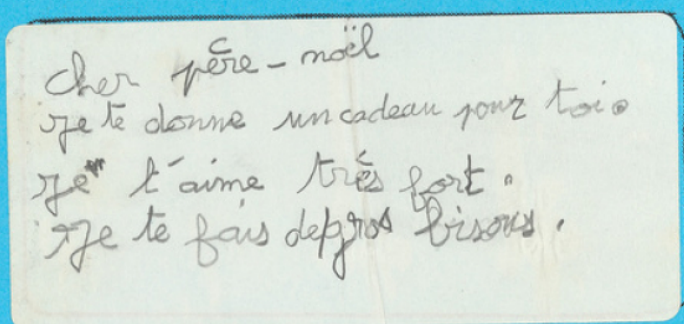 cher père-noël
je te donne un cadeau pour toi.
je t'aime très fort.
Je te fais de gros bisous.